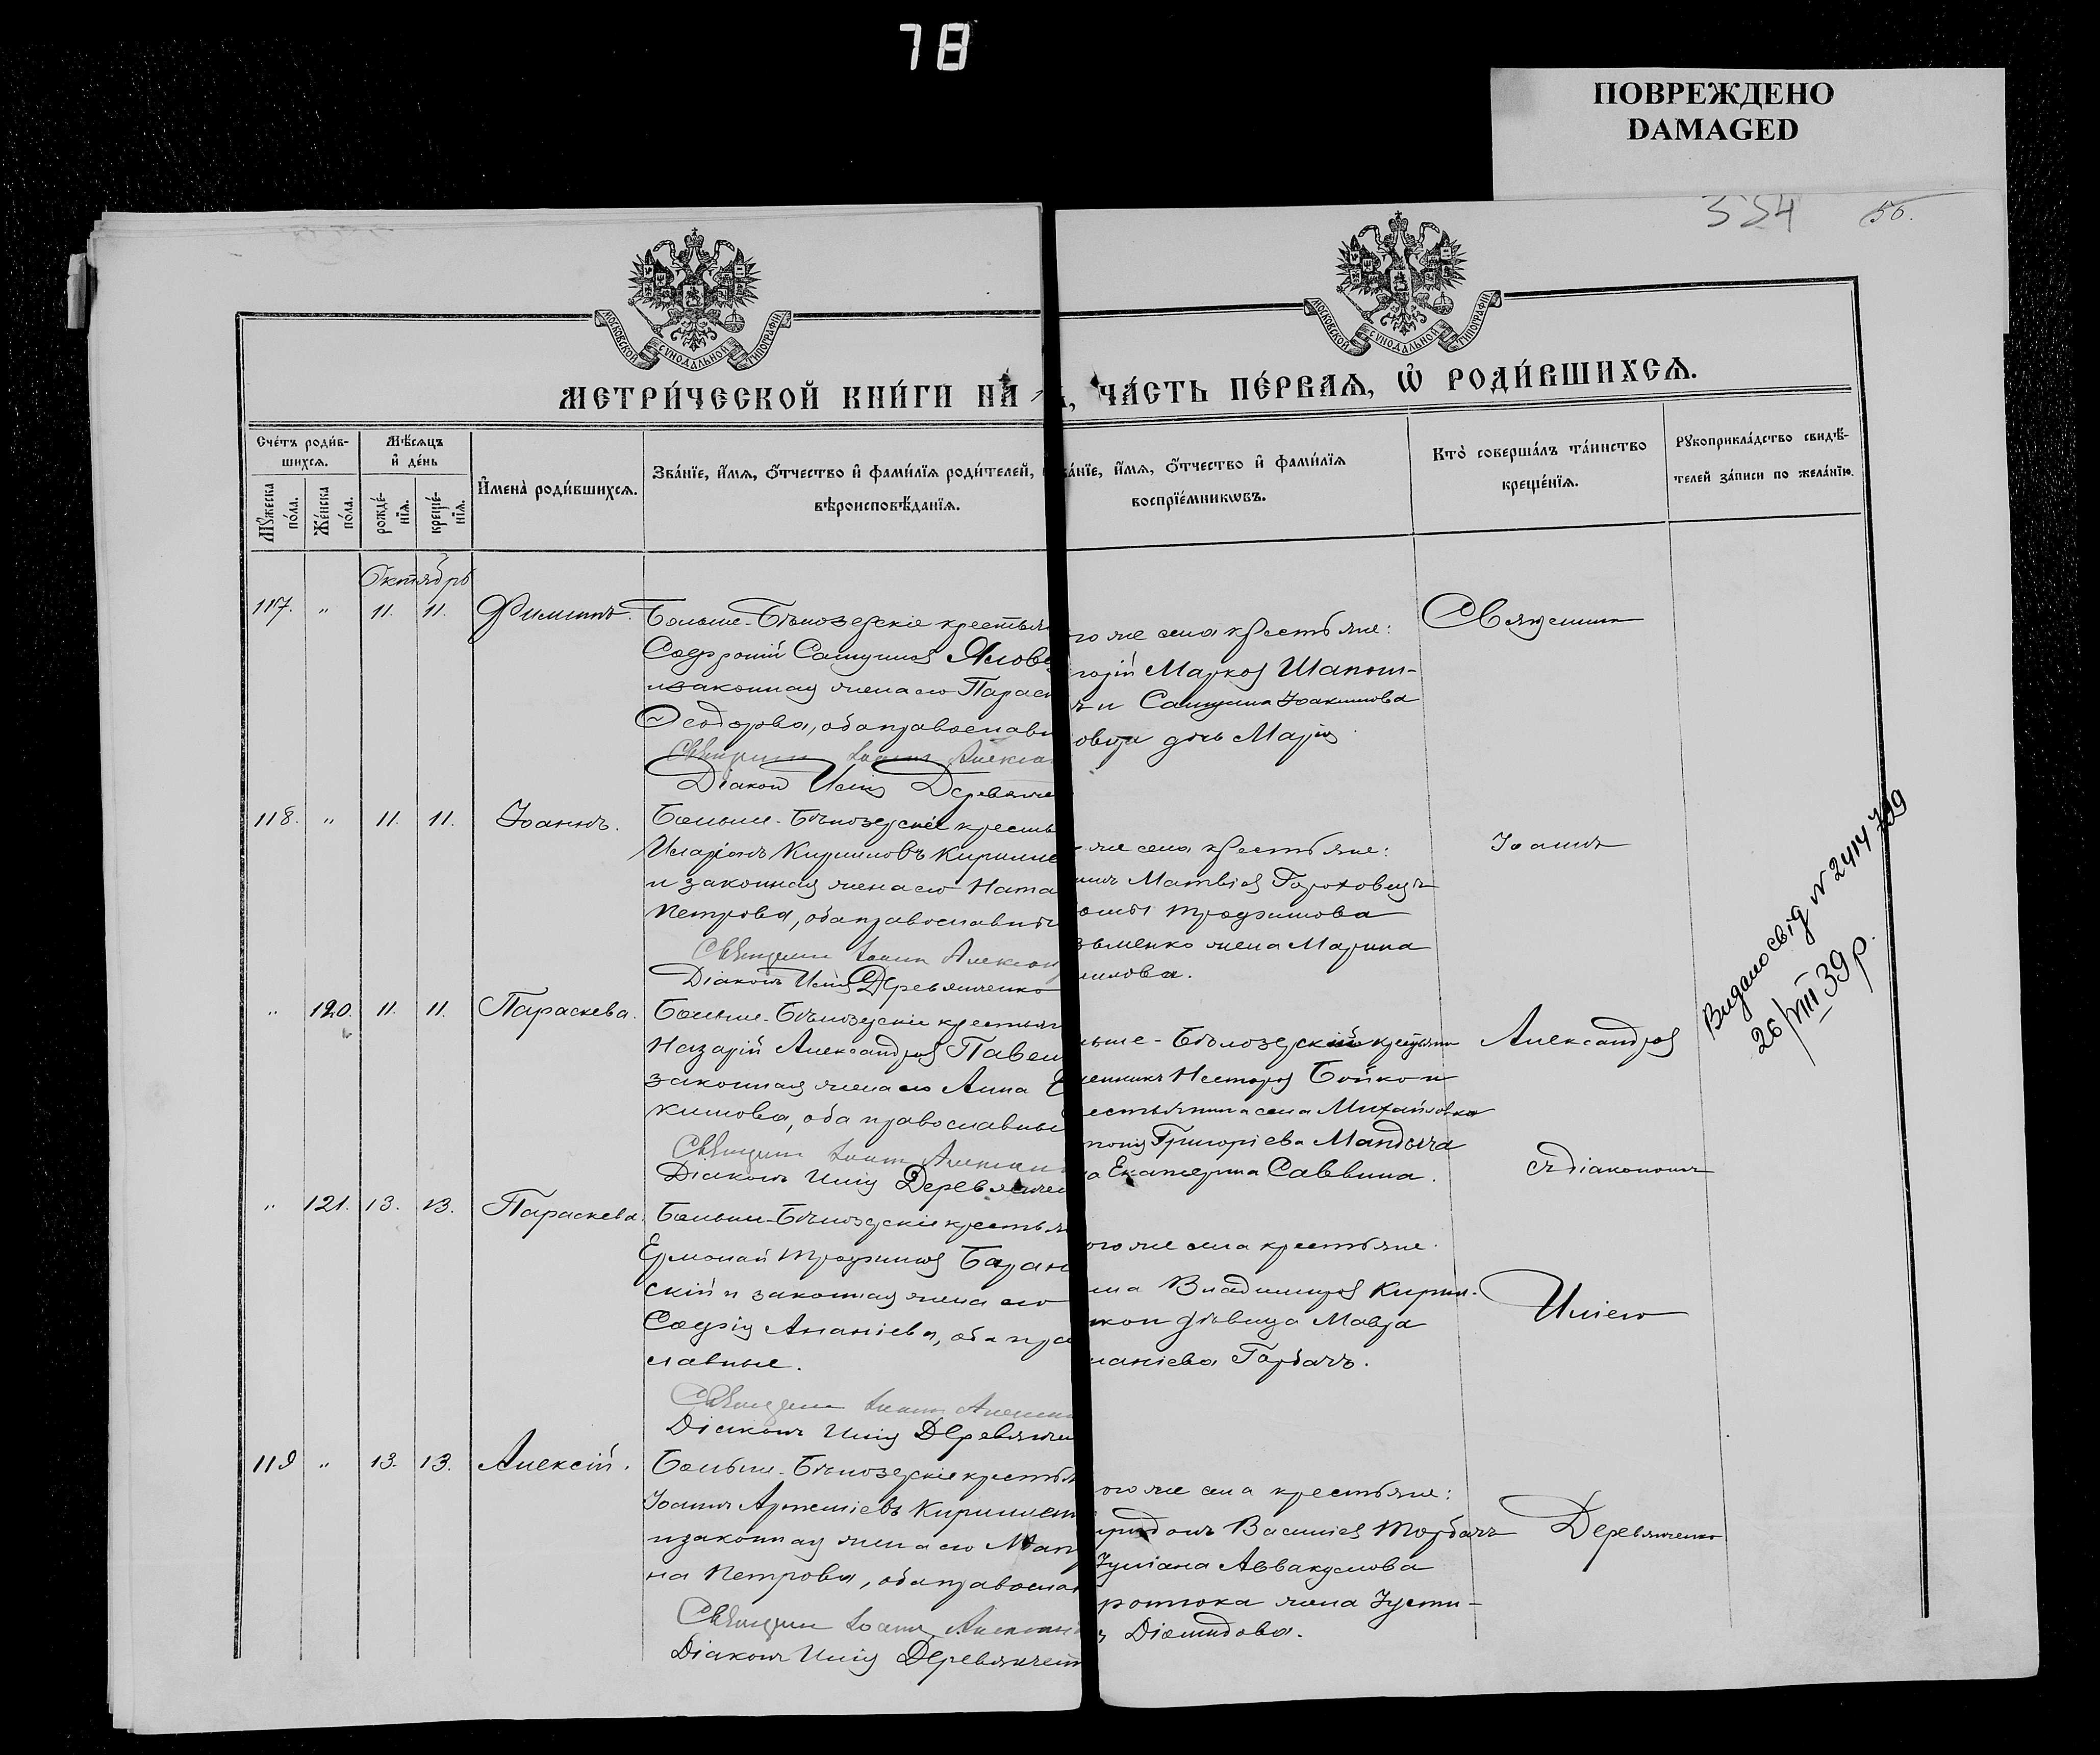 78
ПОВРЕЖДЕНО
DAMAGED
354 56.
МОСКОВСКОЙ СѴНОДАЛЬНОЙ ТИПОГРАФІИ
МОСКОВСКОЙ СѴНОДАЛЬНОЙ ТИПОГРАФІИ
МЕТРИ́ЧЕСКОЙ КНИ́ГИ НА
, ЧА́СТЬ ПЕ́РВАѦ, Ѡ҆ РОДИ́ВШИХСѦ.
Сче́тъ роди́в-
шихсѧ.
Мѹ́жеска по́ла.
Же́нска по́ла.
Мѣ́сѧцъ и҆ де́нь
рожде́-
нїѧ.
креще́-
нїѧ.
И҆мена̀ роди́вшихсѧ.
Зва́нїе, и҆́мѧ, ѻ҆́тчество и҆ фами́лїѧ роди́телей,
вѣроисповѣ́данїѧ.
ва́нїе, и҆́мѧ, ѻ҆́тчество и҆ фами́лїѧ
воспрїе́мникѡвъ.
Кто̀ соверша́лъ та́инство
креще́нїѧ.
Рꙋкоприкла́дство свидѣ́-
телей за́писи по жела́нїю.
Октябрь
117. " 11. 11. Филиппъ.
Больше-Бѣлозерскіе крестьян
Софроній Самуилов Яловe
и законная жена его Параск
Ѳеодорова, оба православн
Священник Іоанн Алексан
Діакон Илія Деревянче
го же села крестьяне:
горій Марков Шапош-
ъ и Самуила Іоакимова
овца дочь Марія.
Священник
118. " 11. 11. Іоаннъ.
Больше-Бѣлозерскіе кресть
Иларіонъ Кирилловъ Кирилле
и законная жена его Ната
Петрова, оба православны
Священник Іоанн Александ
Діаконъ Илія Деревянченко
же села крестьяне:
Матвіев Гороховецъ
Трофимова
зьменко жена Марина
илова.
Іоаннъ
" 120. 11. 11. Параскева.
Больше-Бѣлозерскіе крестьян
Назарій Александров Павел
законная жена его Анна Е
кимова, оба православные
Священник Іоанн Алексан
Діаконъ Илія Деревянчен
ьше-Бѣлозерский крестьянин
Несторов Бойко и
естьянина села Михайловки
Григоріева Мандыча
а Екатерина Саввина.
Александров
съ діакономъ
Видано свід N 2414729
26/VIII 39 р.
" 121. 13. 13. Параскева.
Больше-Бѣлозерскіе крестья
Ермолай Трофимов Баран
скій и законная жена его
Софія Ананіева, оба пра
славные.
Священник Іоанн Алексан
Діаконъ Илія Деревянчен
ого же села крестьяне.
ма Владимиров Кирил-
ко и дѣвица Мавра
наніева Горбачъ.
Иліею
119 " 13. 13. Алексій.
Больше-Бѣлозерскіе крестья
Іоаннъ Артеміевъ Кириллен
и законная жена его Мат
на Петрова, оба православ
Священник Іоанн Алексан
Діаконъ Илія Деревянчен
ого же села крестьяне:
иридонъ Василіев Торбачъ
Іуліана Аввакумова
ротюка жена Іусти-
Діомидова.
Деревянченко